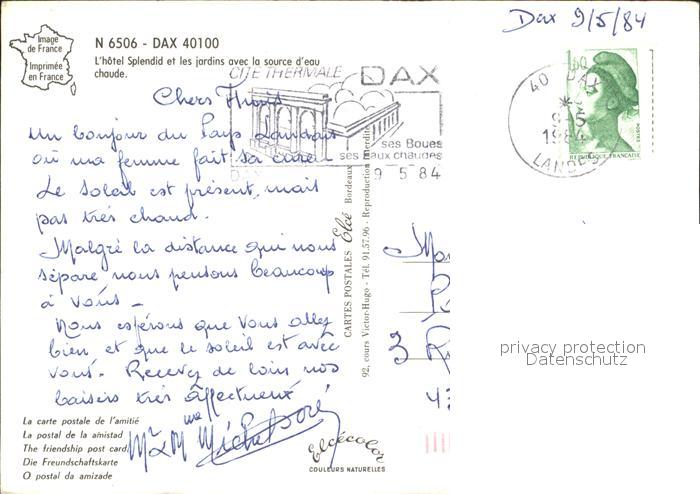 Image
de France
Imprimée
en France
N 6506 - DAX 40100
L'hôtel Splendid et les jardins avec la source d'eau
chaude.
Dax 9/5/84
CITÉ THERMALE DAX
ses Boues
ses Eaux chaudes
DAX
9 5 84
1,60
40 DAX
9-5
1984
LANDES
REPUBLIQUE FRANÇAISE
Chers
Un bonjour du Pays Landais
où ma femme fait sa cure.
Le soleil est présent, mais
pas très chaud.
Malgré la distance qui nous
sépare nous pensons beaucoup
à vous -
Nous espérons que vous allez
bien, et que le soleil est avec
vous. Recevez de loin nos
baisers très affectueux
Mr & Mme Michel
CARTES POSTALES Elcé Bordeaux
92, cours Victor-Hugo - Tél. 91.57.96 - Reproduction interdite
3
privacy protection
Datenschutz
La carte postale de l'amitié
La postal de la amistad
The friendship post card
Die Freundschaftskarte
O postal da amizade
Elcécolor
COULEURS NATURELLES